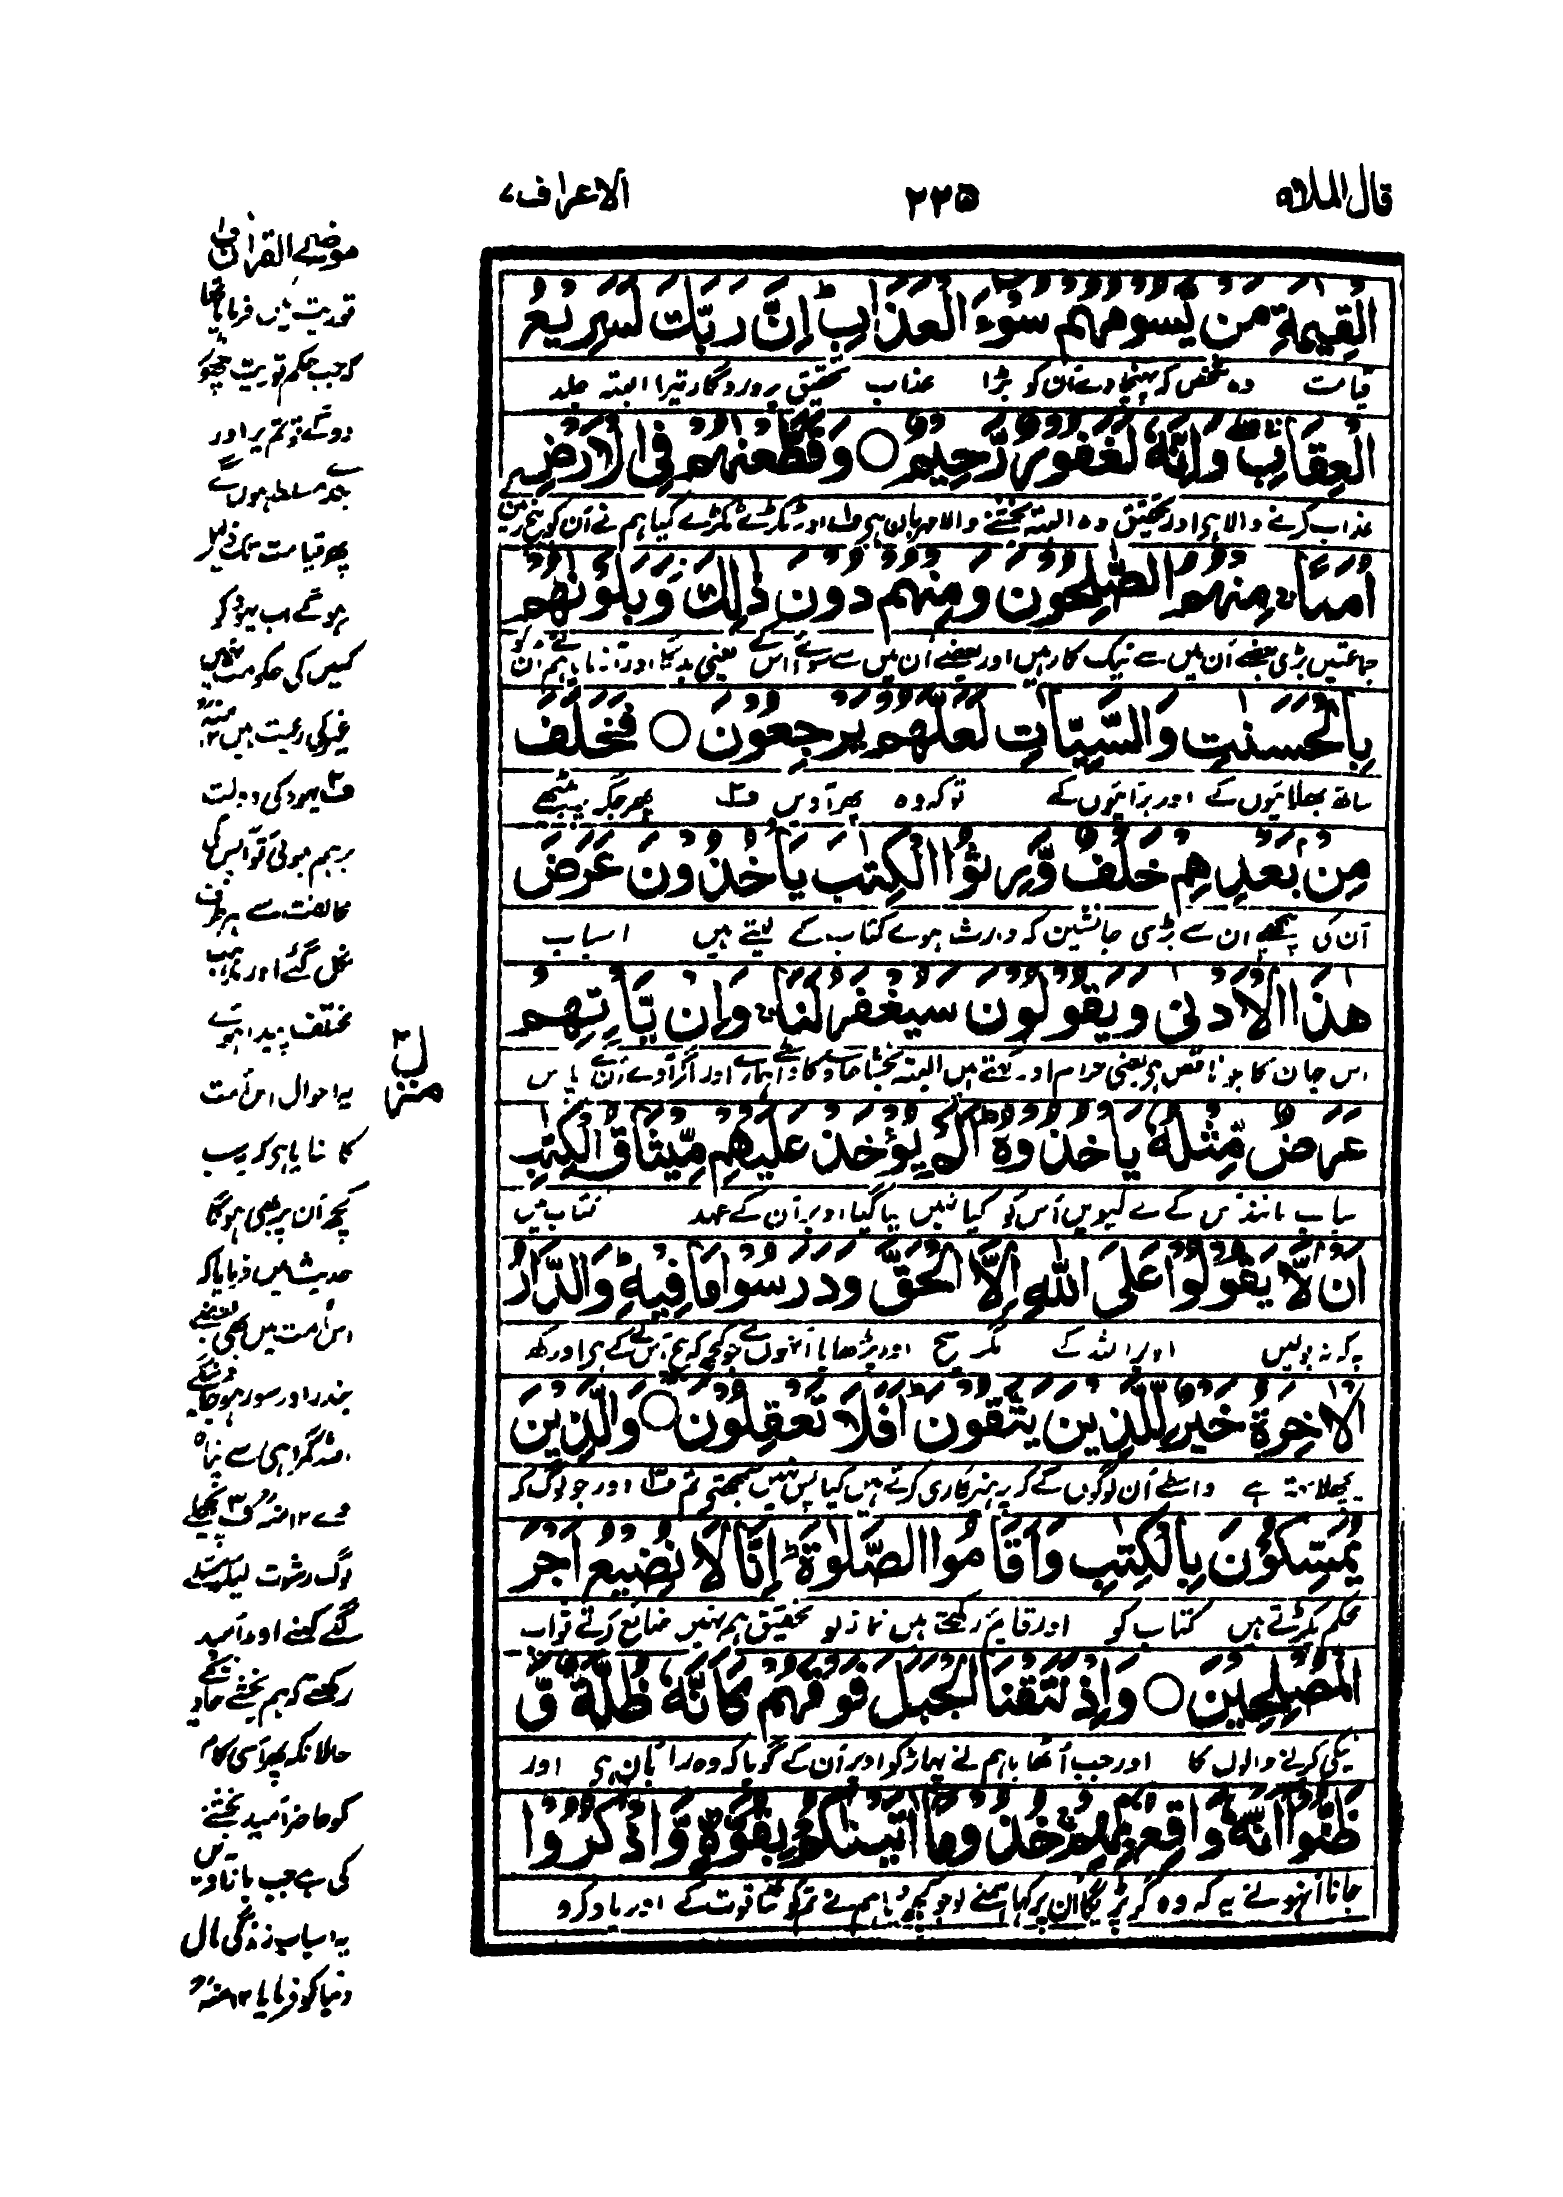 قال الملا ٩
٢٣٥
الاعراف ٧
الْقِيٰمَةِ مَنْ يَّسُوْمُهُمْ سُوْٓءَ الْعَذَابِ ؕ اِنَّ رَبَّكَ لَسَرِيْعُ
قیامت وہ شخص کہ پہنچاوے اُن کو بڑا عذاب تحقیق پروردگار تیرا البتہ جلد
الْعِقَابِ وَاِنَّهٗ لَغَفُوْرٌ رَّحِيْمٌ ○ وَقَطَّعْنٰهُمْ فِى الْاَرْضِ
عذاب کرنے والا ہی اور تحقیق وہ البتہ بخشنے والا مہربان ہی ف اور ٹکڑے ٹکڑے کیا ہم نے اُن کو بیچ زمین کے
اُمَمًا ۚ مِنْهُمُ الصّٰلِحُوْنَ وَمِنْهُمْ دُوْنَ ذٰلِكَ وَبَلَوْنٰهُمْ
جماعتیں بڑی بعضے اُن میں سے نیک کار ہیں اور بعضے اُن میں سے سوائے اس کے یعنی بد اور آزمایا ہم نے اُن کو
بِالْحَسَنٰتِ وَالسَّيِّاٰتِ لَعَلَّهُمْ يَرْجِعُوْنَ ○ فَخَلَفَ
ساتھ بھلائیوں کے اور برائیوں کے توکہ وہ پھر آویں ف٢ پھر جگہ بیٹھے
مِنْۢ بَعْدِهِمْ خَلْفٌ وَّرِثُوا الْكِتٰبَ يَاْخُذُوْنَ عَرَضَ
اُن کی پیچھے ان سے بڑی جانشین کہ وارث ہوے کتاب کے لیتے ہیں اسباب
هٰذَا الْاَدْنٰى وَيَقُوْلُوْنَ سَيُغْفَرُ لَنَا ۚ وَاِنْ يَّاْتِهِمْ
اس جہان کا جو ناقص ہی یعنی حرام اور کہتے ہیں البتہ بخشا جاویگا واسطے ہمارے اور اگر آوے اُن پاس
عَرَضٌ مِّثْلُهٗ يَاْخُذُوْهُ ؕ اَلَمْ يُؤْخَذْ عَلَيْهِمْ مِّيْثَاقُ الْكِتٰبِ
اسباب مانند اس کے لے لیویں اُس کو کیا نہیں لیا گیا اوپر اُن کے عہد کتاب میں
اَنْ لَّا يَقُوْلُوْا عَلَى اللّٰهِ اِلَّا الْحَقَّ وَدَرَسُوْا مَا فِيْهِ ؕ وَالدَّارُ
یہ کہ نہ بولیں اوپر اللہ کے مگر سچ اور پڑھا یا اُنہوں نے جو کچھ کہ بیچ اُس کے ہی اور گھر
الْاٰخِرَةُ خَيْرٌ لِّلَّذِيْنَ يَتَّقُوْنَ ؕ اَفَلَا تَعْقِلُوْنَ ○ وَالَّذِيْنَ
پچھلا بہتر ہے واسطے اُن لوگوں کے کہ پرہیزگاری کرتے ہیں کیا پس نہیں سمجھتے تم ف٣ اور جو لوگ کہ
يُمَسِّكُوْنَ بِالْكِتٰبِ وَاَقَامُوا الصَّلٰوةَ ؕ اِنَّا لَا نُضِيْعُ اَجْرَ
محکم پکڑتے ہیں کتاب کو اور قایم رکھتے ہیں نماز کو تحقیق ہم نہیں ضائع کرتے ثواب
الْمُصْلِحِيْنَ ○ وَاِذْ نَتَقْنَا الْجَبَلَ فَوْقَهُمْ كَاَنَّهٗ ظُلَّةٌ وَّ
نیکی کرنے والوں کا اور جب اُٹھایا ہم نے پہاڑ کو اوپر اُن کے گویا کہ وہ سائبان ہی اور
ظَنُّوْٓا اَنَّهٗ وَاقِعٌۢ بِهِمْ ۚ خُذُوْا مَآ اٰتَيْنٰكُمْ بِقُوَّةٍ وَّاذْكُرُوْا
جانا اُنہوں نے یہ کہ وہ گر پڑیگا اُن پر کہا ہمنے لو جو کچھ دیا ہم نے تم کو ساتھ قوت کے اور یاد کرو
منزل ٢
موضح القرآن ف
توریت میں فرمایا تھا
کہ جب حکم توریت چھوڑ
دوگے تو تم پر اور
بندے مسلط ہوں گے
پھر قیامت تک ذلیل
ہو گے اب یہود کو
کہیں کی حکومت نہیں
غیر کی رعیت ہیں ١٢ منہ
ف٢ یہود کی دولت
برہم ہوئی تو آپس کی
مخالفت سے ہر طرف
نکل گئے اور مذہب
مختلف پیدا ہوئے
یہ احوال اس اُمت
کا سنایا ہی کہ یہ سب
کچھ اُن پر بھی ہوگا
حدیث میں فرمایا کہ
اس اُمت میں بھی بعضے
بندر اور سور ہو جاوینگے
اللہ گمراہی سے پناہ
دے ١٢ منہ ف٣ پچھلے
لوگ رشوت لیکر مسئلے
لگے کہنے اور اُمید
رکھتے کہ ہم بخشے جاوینگے
حالانکہ پھر اُسی کام
کو حاضر اُمید بخشنے
کی ہے جب باز آویں
یہ اسباب زندگی مال
دنیا کو فرمایا ١٢ منہ